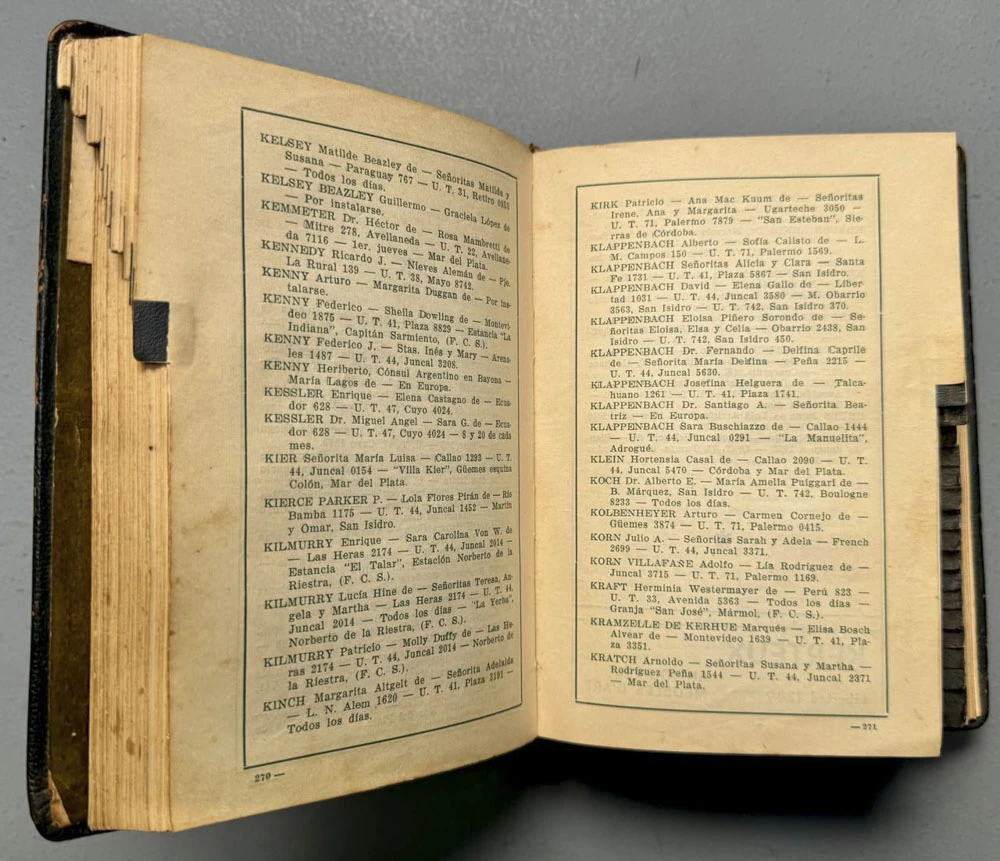 KELSEY Matilde Beazley de — Señoritas Matilde y
Susana — Paraguay 767 — U. T. 31, Retiro
— Todos los días.
KELSEY BEAZLEY Guillermo — Graciela López de
— Por instalarse.
KEMMETER Dr. Héctor de — Rosa Mambretti de
— Mitre 278, Avellaneda — U. T. 22, Avellane-
da 7116 — 1er. jueves — Mar del Plata.
KENNEDY Ricardo J. — Nieves Alemán de — Pje.
La Rural 139 — U. T. 38, Mayo 8742.
KENNY Arturo — Margarita Duggan de — Por ins-
talarse.
KENNY Federico — Sheila Dowling de — Montevi-
deo 1875 — U. T. 41, Plaza 8829 — Estancia "La
Indiana", Capitán Sarmiento, (F. C. S.).
KENNY Federico J. — Stas. Inés y Mary — Arena-
les 1487 — U. T. 44, Juncal 3208.
KENNY Heriberto, Cónsul Argentino en Bayona —
María Lagos de — En Europa.
KESSLER Enrique — Elena Castagno de — Ecua-
dor 628 — U. T. 47, Cuyo 4024.
KESSLER Dr. Miguel Angel — Sara G. de — Ecua-
dor 628 — U. T. 47, Cuyo 4024 — 8 y 20 de cada
mes.
KIER Señorita María Luisa — Callao 1293 — U. T.
44, Juncal 0154 — "Villa Kier", Güemes esquina
Colón, Mar del Plata.
KIERCE PARKER P. — Lola Flores Pirán de — Río
Bamba 1175 — U. T. 44, Juncal 1452 — Martín
y Omar, San Isidro.
KILMURRY Enrique — Sara Carolina Von W. de
— Las Heras 2174 — U. T. 44, Juncal 2014 —
Estancia "El Talar", Estación Norberto de la
Riestra, (F. C. S.).
KILMURRY Lucía Hine de — Señoritas Teresa, An-
gela y Martha — Las Heras 2174 — U. T. 44,
Juncal 2014 — Todos los días — "La Yerba",
Norberto de la Riestra, (F. C. S.).
KILMURRY Patricio — Molly Duffy de — Las He-
ras 2174 — U. T. 44, Juncal 2014 — Norberto de
la Riestra, (F. C. S.).
KINCH Margarita Altgelt de — Señorita Adelaida
— L. N. Alem 1620 — U. T. 41, Plaza 3191 —
Todos los días.
270 —
KIRK Patricio — Ana Mac Kuum de — Señoritas
Irene, Ana y Margarita — Ugarteche 3050 —
U. T. 71, Palermo 7879 — "San Esteban", Sie-
rras de Córdoba.
KLAPPENBACH Alberto — Sofía Calisto de — L.
M. Campos 150 — U. T. 71, Palermo 1569.
KLAPPENBACH Señoritas Alicia y Clara — Santa
Fe 1731 — U. T. 41, Plaza 5867 — San Isidro.
KLAPPENBACH David — Elena Gallo de — Liber
tad 1031 — U. T. 44, Juncal 3580 — M. Obarrio
3563, San Isidro — U. T. 742, San Isidro 370.
KLAPPENBACH Eloisa Piñero Sorondo de — Se-
ñoritas Eloisa, Elsa y Celia — Obarrio 2438, San
Isidro — U. T. 742, San Isidro 450.
KLAPPENBACH Dr. Fernando — Delfina Caprile
de — Señorita María Delfina — Peña 2215 —
U. T. 44, Juncal 5630.
KLAPPENBACH Josefina Helguera de — Talca-
huano 1261 — U. T. 41, Plaza 1741.
KLAPPENBACH Dr. Santiago A. — Señorita Bea-
triz — En Europa.
KLAPPENBACH Sara Buschiazzo de — Callao 1444
— U. T. 44, Juncal 0291 — "La Manuelita",
Adrogué.
KLEIN Hortensia Casal de — Callao 2090 — U. T.
44, Juncal 5470 — Córdoba y Mar del Plata.
KOCH Dr. Alberto E. — María Amelia Puiggari de —
B. Márquez, San Isidro — U. T. 742, Boulogne
8233 — Todos los días.
KOLBENHEYER Arturo — Carmen Cornejo de —
Güemes 3874 — U. T. 71, Palermo 0415.
KORN Julio A. — Señoritas Sarah y Adela — French
2699 — U. T. 44, Juncal 3371.
KORN VILLAFAÑE Adolfo — Lía Rodríguez de —
Juncal 3715 — U. T. 71, Palermo 1169.
KRAFT Herminia Westermayer de — Perú 823 —
U. T. 33, Avenida 5363 — Todos los días —
Granja "San José", Mármol, (F. C. S.).
KRAMZELLE DE KERHUE Marqués — Elisa Bosch
Alvear de — Montevideo 1639 — U. T. 41, Pla-
za 3351.
KRATCH Arnoldo — Señoritas Susana y Martha —
Rodríguez Peña 1544 — U. T. 44, Juncal 2371
— Mar del Plata.
— 271